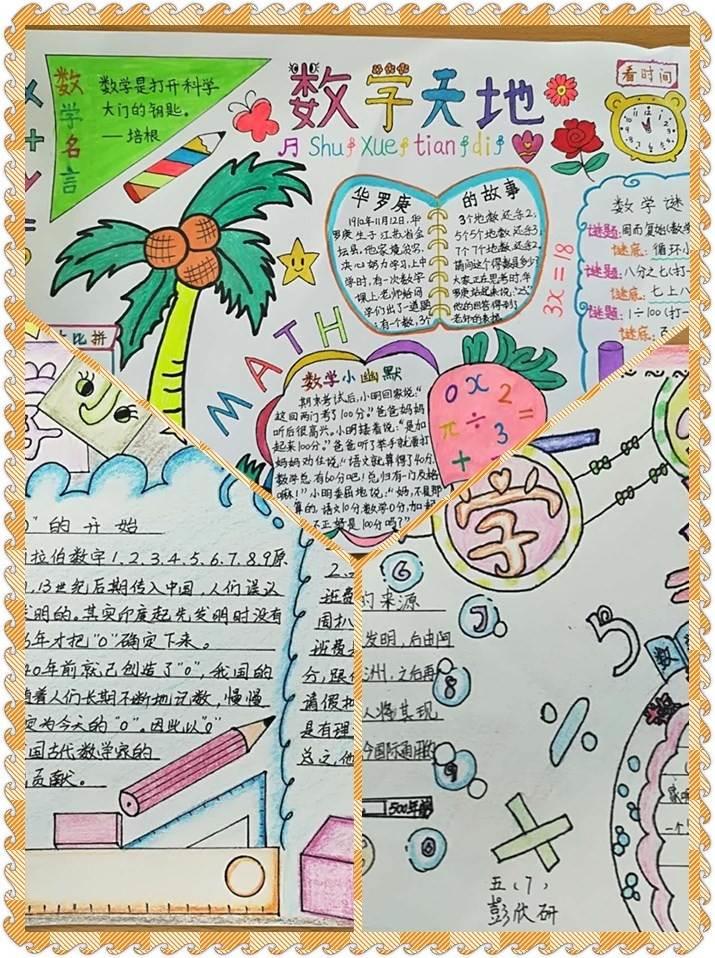 数学名言
数学是打开科学
大门的钥匙。
—培根
数学天地
Shu Xue tian di
看时间
华罗庚 的故事
1910年11月12日,华
罗庚生于江苏省金
坛县。他家境贫穷,
决心努力学习。上中
学时,有一次数学
课上,老师给同
学们出了一道题
:有一个数,3个
3个地数,还余2;
5个5个地数,还余3,
7个7个地数,还余2,
请问这个得数是多少?
大家正在思考时,华
罗庚站起来说:"23"
他的回答得到了
老师的表扬。
3x=18
数学谜
谜题:周而复始(数学
谜底:循环小
谜题:八分之七(打一
谜底:七上八
谜题:1÷100(打一
谜底:百
比拼
MATH
数学小幽默
期末考试后,小明回家说:"
这回两门考了100分。"爸爸妈妈
听后很高兴。小明接着说:"是加
起来100分。"爸爸听了举手就着打
妈妈劝住说,"语文就算得了40分,
数学总有60分吧!总归有一门及格
嘛!"小明委屈地说:"妈,不是那
算的。语文10分,数学0分,加起
不正好是100分吗??
0 x 2
π ÷ =
+ 3
0"的开始
拉伯数字1、2、3、4、5、6、7、8、9原
,13世纪后期传入中国,人们误认
发明的。其实印度起先发明时没有
年才把"0"确定下来。
年前就已创造了"0",我国的
随着人们长期不断地记数,慢慢
变为今天的"0"。因此以"0"
国古代数学家的
贡献。
2、
班费
围扒
班费
分,跟
请假
是有理
总之,他
学
6
的来源
7
发明,后由阿
8
洲,之后再
人将其现
今国际通用的
9
500年前
数
一个
五(7)
彭欣研